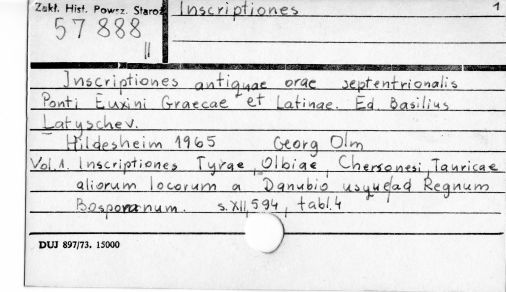 Zakł. Hist. Powsz. Staroż
Inscriptiones
1
57 888
II
Inscriptiones antiquae orae septentrionalis
Ponti Euxini Graecae et Latinae. Ed. Basilius
Latyschev.
Hildesheim 1965 Georg Olm
Vol. 1. Inscriptiones Tyrae, Olbiae, Chersonesi Tauricae
aliorum locorum a Danubio usque ad Regnum
Bosporanum. s. XII, 594, tabl. 4
DUJ 897/73. 15000